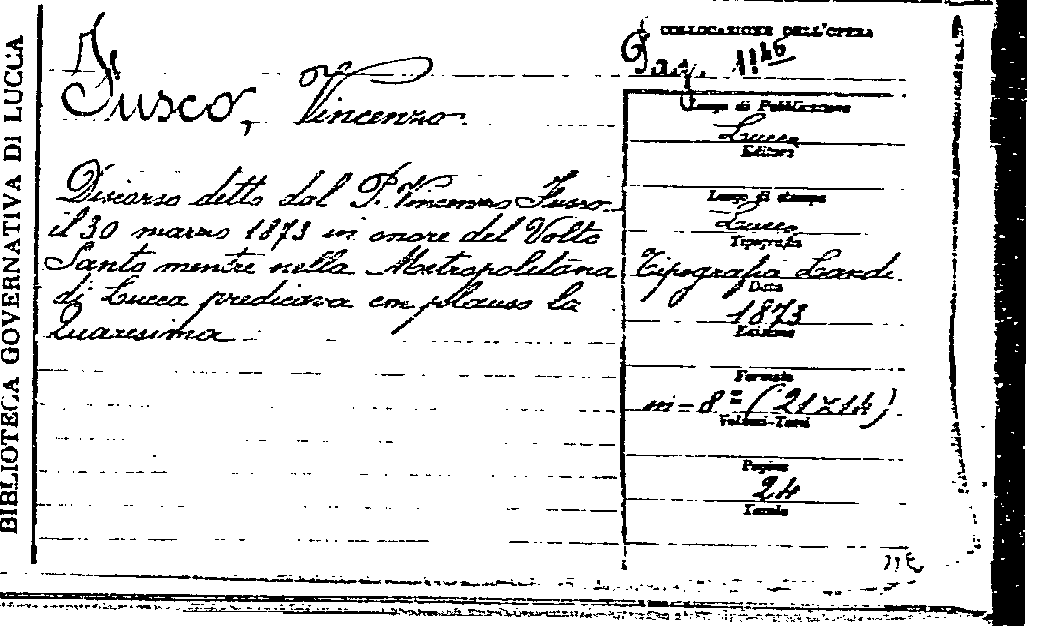 BIBLIOTECA GOVERNATIVA DI LUCCA
Fusco, Vincenzo
Discorso detto dal P. Vincenzo Fusco
il 30 marzo 1873 in onore del Volto
Santo mentre nella Metropolitana
di Lucca predicava con plauso la
Quaresima
COLLOCAZIONE DELL'OPERA
Luogo di Pubblicazione
Lucca
Editore
Luogo di stampa
Lucca
Tipografia
Tipografia Landi
Data
1873
Edizione
Formato
in-8° (21x14)
Volumi-Tomi
Pagine
24
Tavole